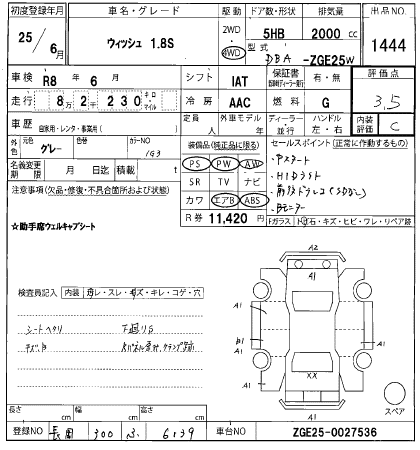 初度登録年月 車名・グレード 駆動 ドア数・形状 排気量 出品NO.
25/6月 ウィッシュ 1.8S 2WD 4WD 5HB 2000 cc 1444
型式 DBA-ZGE25W
車検 R8年 6月 シフト IAT 保証書 有・無 評価点
走行 8万2千230 キロ・マイル 冷房 AAC 燃料 G 3.5
車歴 自家用・レンタ・事業用( ) 定員 人 外車モデル 年 ディーラー・並行 ハンドル 左・右 内装評価 C
外色 元色 グレー 色替 カラーNO 1G3
名義変更期限 月 日迄 積載 t
装備品(純正品に限る) PS PW AW SR TV ナビ カワ エアB ABS
R券 11,420円
セールスポイント(正常に作動するもの)
・Pスタート
・HIDライト
・前後ドラレコ(SD無し)
・Bモニター
Fガラス トビ石・キズ・ヒビ・ワレ・リペア跡
注意事項(欠品・修復・不具合箇所および状態)
☆助手席ウェルキャブシート
検査員記入 内装 汚レ・スレ・キズ・キレ・コゲ・穴
シートヘタリ 下廻りS
キズB
A2
41
A1
A1
A1
B1
A1
XX
A1
スペア
長さ cm 幅 cm 高さ cm
登録NO 長岡 300 6139 車台NO ZGE25-0027536